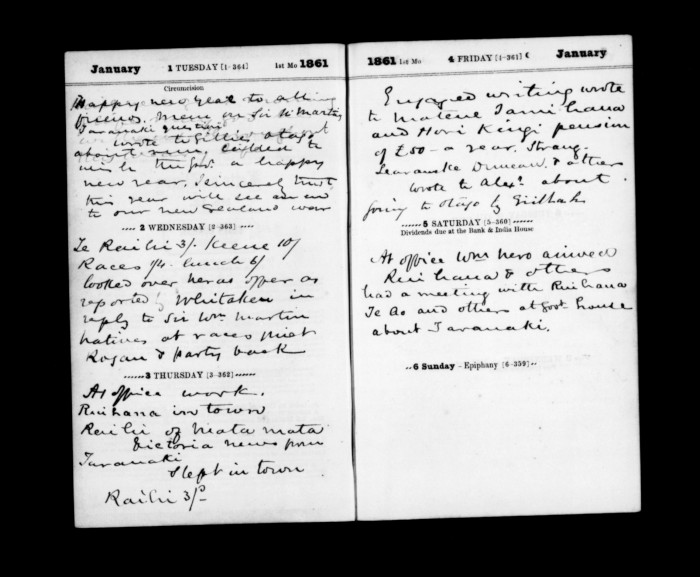 January 1 TUESDAY [1-364] 1st Mo 1861
Circumcision
Happy new year to all my
friends. mem on Sir W Martin
Taranaki question
wrote to Gillies Otago
about runs, called to
wish the Gov. a happy
new year, I sincerely trust
this year will see an end
to our new Zealand war
2 WEDNESDAY [2-363]
Te Raihi 3/- Keene 10/
Races 14 lunch 6/
looked over news paper as
reported by Whitaker in
reply to Sir Wm Martin
natives at races met
Rogan & party back
3 THURSDAY [3-362]
At office work.
Reihana in town
Raihi of Mata mata
Victoria news from
Taranaki
Slept in town
Raihi 3/-
1861 1st Mo 4 FRIDAY [4-361] January
Engaged writing wrote
to Matene Tamihana
and Hori Kingi pension
of £50 - a year.
Duncan & others
wrote to Alexr about
going to Otago by
5 SATURDAY [5-360]
Dividends due at the Bank & India House
At office Wm hero arrived
Reihana & others
had a meeting with Reihana
Te Ao and others at Govt house
about Taranaki.
6 Sunday - Epiphany [6-359]